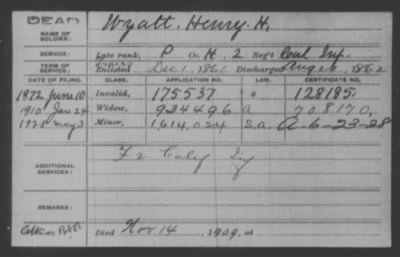 DEAD
NAME OF SOLDIER: Wyatt. Henry H.
SERVICE: Late rank, P Co. H, 2 Reg't Inf.
TERM OF SERVICE: Enlisted Dec 1, 1861 Discharged Aug 26, 1862
DATE OF FILING. CLASS. APPLICATION NO. LAW. CERTIFICATE NO.
1872 June 10 Invalid, 175537 128185
1910 Jan 24 Widow, 934496 A 708170
1928 May 3 Minor, 1,614,024 S.a. A-6-23-28
ADDITIONAL SERVICES: F 2 Inf
REMARKS:
Died Nov 14, 1909, at